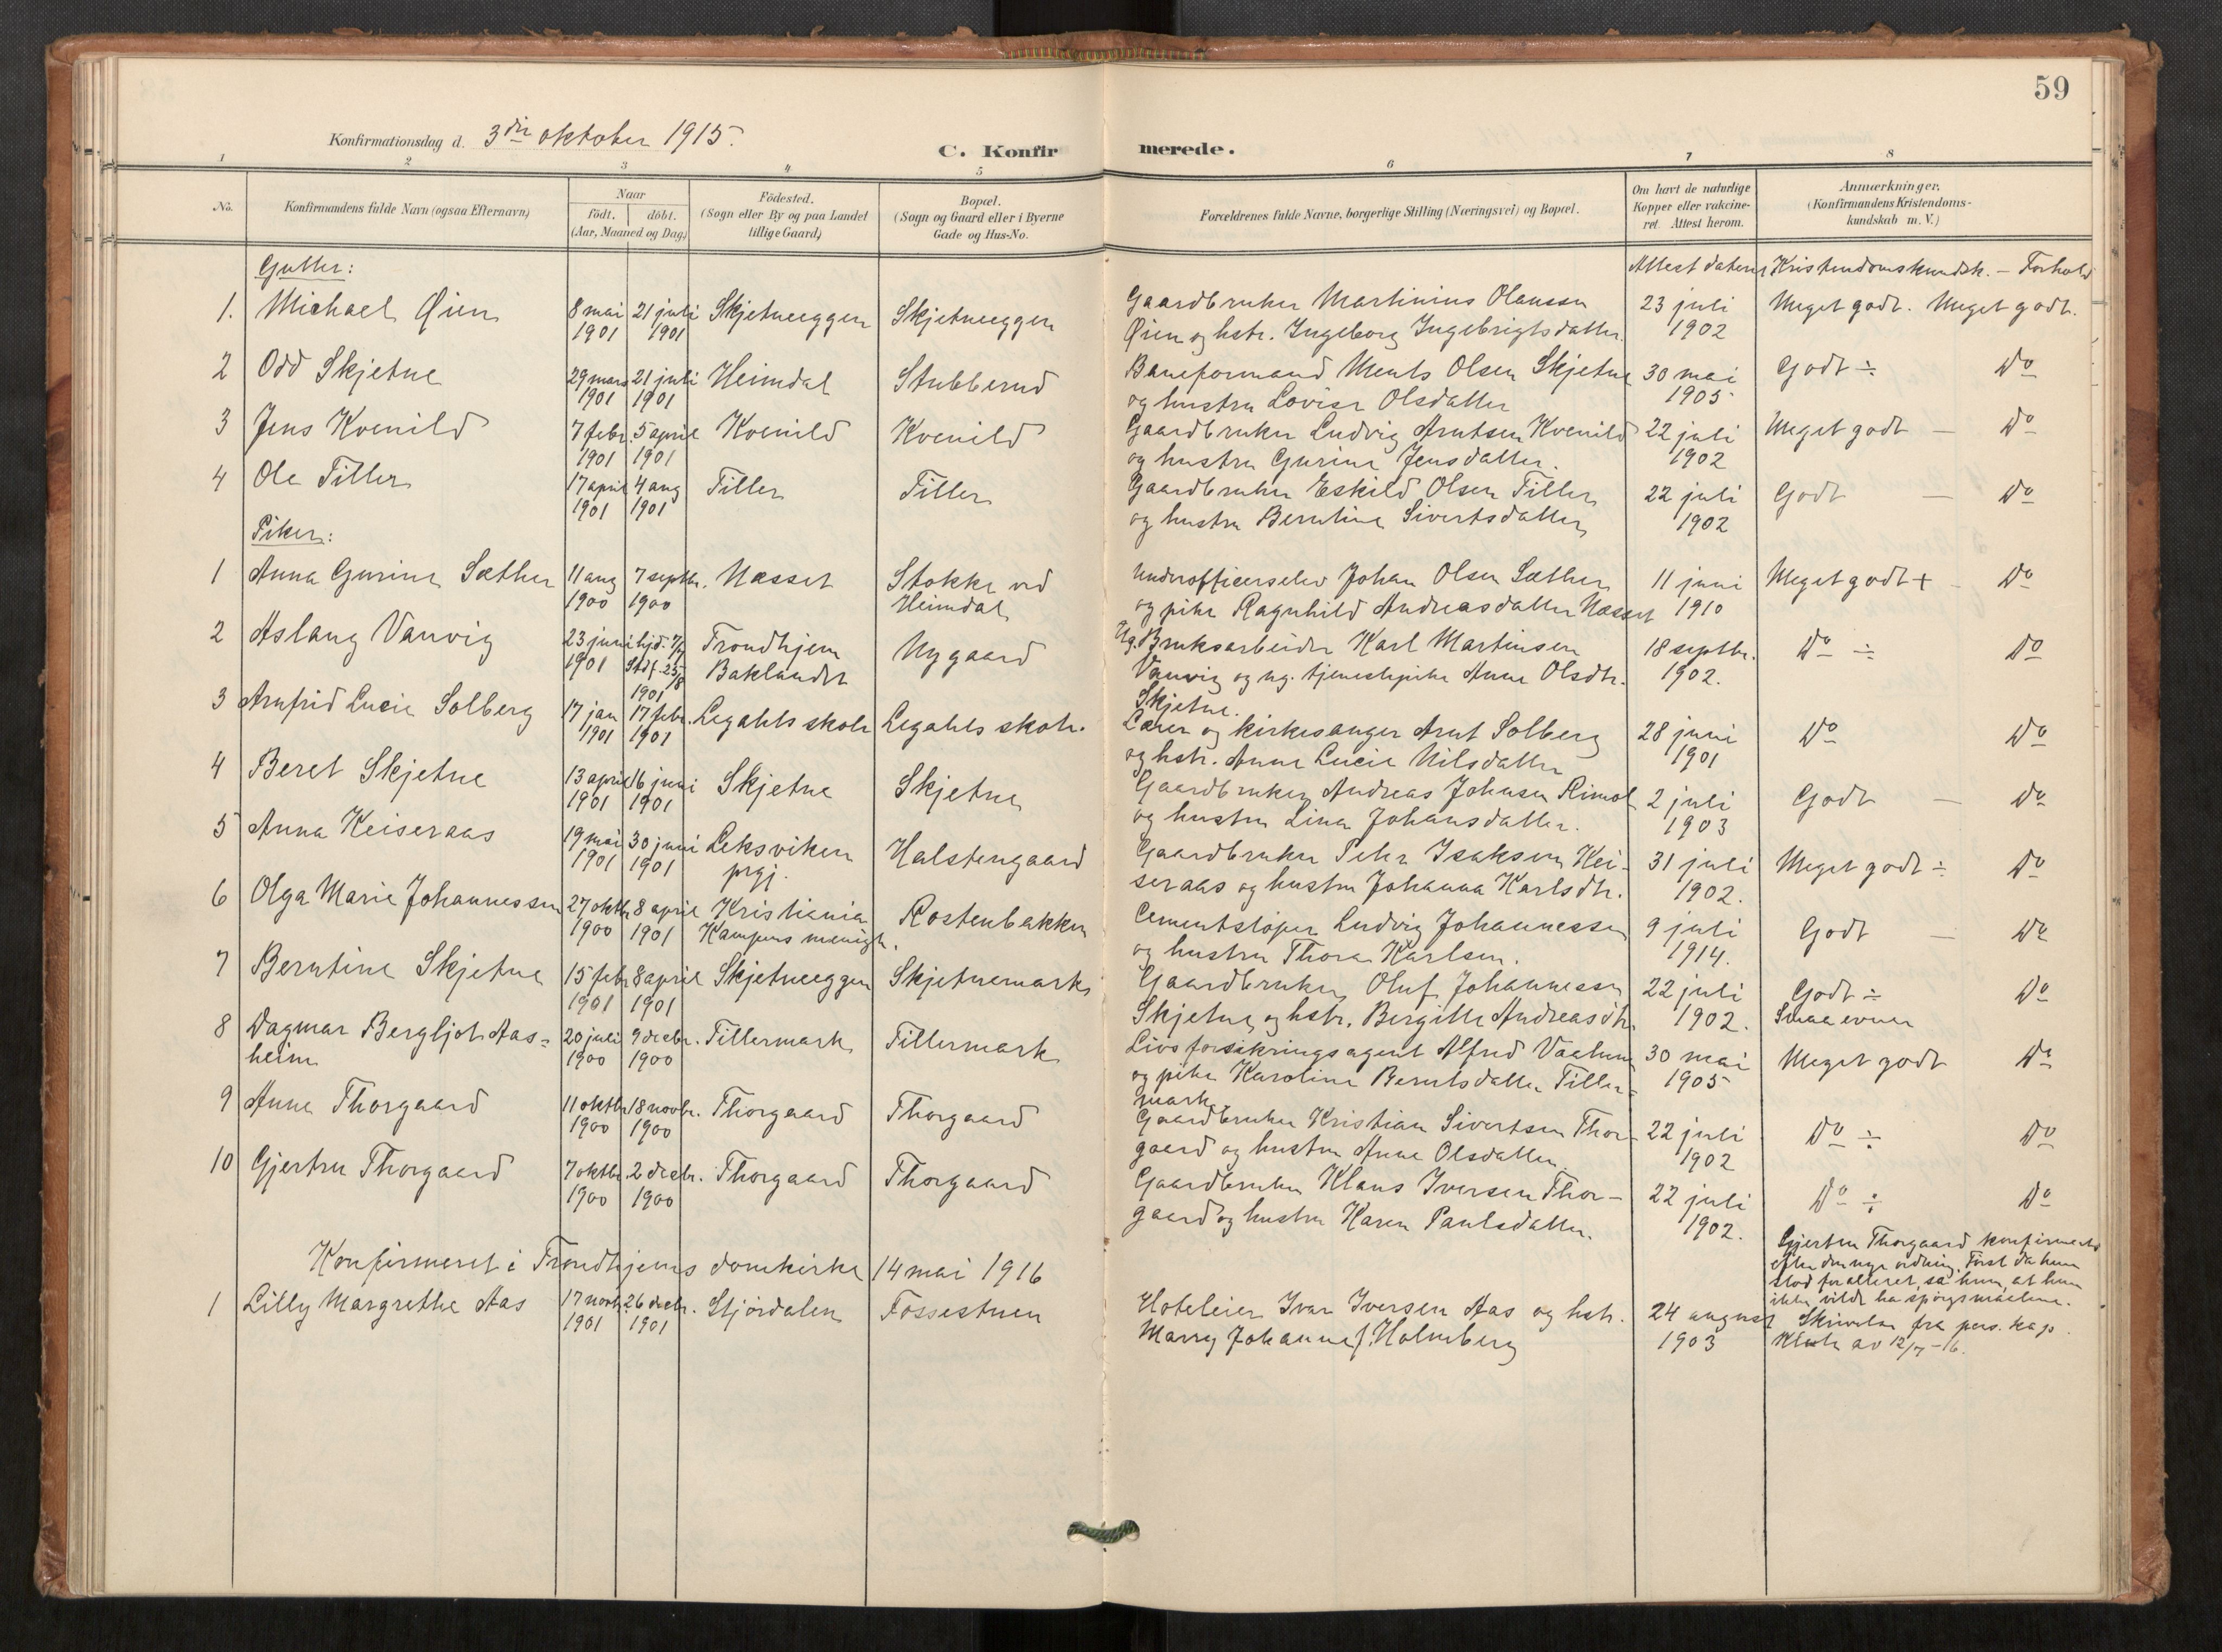 59
Konfirmationsdag d. 3die oktober 1915.
C. Konfirmerede.
1 2 3 4 5 6 7 8
No.
Konfirmandens fulde Navn (ogsaa Efternavn)
Naar
födt. döbt.
(Aar, Maaned og Dag.)
Födested.
(Sogn eller By og paa Landet
tillige Gaard.)
Bopæl.
(Sogn og Gaard eller i Byerne
Gade og Hus-No.
Forældrenes fulde Navne, borgerlige Stilling (Næringsvei) og Bopæl.
Om havt de naturlige
Kopper eller vakcine-
ret. Attest herom.
Anmærkninger.
(Konfirmandens Kristendoms-
kundskab m. V.)
Gutter:
Attest dateret Kristendomskundsk. - Forhold
1. Michael Øien 8 mai 21 juli Skjetneeggen Skjetneeggen Gaardbruker Martinius Olaussen 23 juli Meget godt. Meget godt.
1901 1901 Øien og hstr. Ingeborg Ingebrigtsdatter. 1902
2 Odd Skjetne 29 mars 21 juli Heimdal Stubberud Baneformand Ments Olsen Skjetne 30 mai Godt ÷ Do
1901 1901 og hustru Lovise Olsdatter 1905
3 Jens Kvenild 7 febr. 5 april Kvenild Kvenild Gaardbruker Ludvig Arntsen Kvenild 22 juli Meget godt — Do
1901 1901 og hustru Gurine Jensdatter. 1902
4 Ole Tiller 17 april 4 aug Tiller Tiller Gaardbruker Eskild Olsen Tiller 22 juli Godt — Do
1901 1901 og hustru Berntine Sivertsdatter 1902
Piker:
1 Anna Gurine Sæther 11 aug 7 septbr. Næsset Stokke ved Underofficerselev Johan Olsen Sæther 11 juni Meget godt + - Do
1900 1900 Heimdal og pike Ragnhild Andreasdatter Næsset 1910
2 Aslaug Vanvig 23 juni hjd. 7/7 Trondhjem Nygaard Ug. Bruksarbeider Karl Martinsen 18 septbr. Do ÷ Do
1901 Stdf. 25/8 1901 Baklandet Vanvig og ug. tjenestepike Anne Olsdtr. 1902.
Skjetne.
3 Arnfrid Lucie Solberg 17 jan 17 febr. Legatets skole Legatets skole. Lærer og kirkesanger Arnt Solberg 28 juni Do Do
1901 1901 og hstr. Anne Lucie Nilsdatter 1901
4 Beret Skjetne 13 april 16 juni Skjetne Skjetne Gaardbruker Andreas Johnsen Rimol 2 juli Godt — Do
1901 1901 og hustru Lina Johansdatter. 1903
5 Anna Keiseraas 19 mai 30 juni Leksviken Halstengaard Gaardbruker Peter Isaksen Kei- 31 juli Meget godt ÷ Do
1901 1901 prgj. seraas og hustru Johanna Karlsdtr. 1902.
6 Olga Marie Johannessen 27 oktbr 8 april Kristiania Rostenbakken Cementstøper Ludvig Johannessen 9 juli Godt — Do
1900 1901 Kampens menigh. og hustru Thora Karlsen. 1914.
7 Berntine Skjetne 15 febr 8 april Skjetneeggen Skjetnemark Gaardbruker Oluf Johannessen 22 juli Godt ÷ Do
1901 1901 Skjetne og hstr. Bergitte Andreasdtr. 1902. Smaa evner
8 Dagmar Bergljot Aas- 20 juli 9 decbr. Tillermark Tillermark Livsforsikringsagent Alfred Vaatun 30 mai Meget godt Do
heim 1900 1900 og pike Karoline Berntsdatter Tiller- 1905
mark
9 Anna Thorgaard 11 oktbr 18 novbr. Thorgaard Thorgaard Gaardbruker Kristian Sivertsen Thor- 22 juli Do ÷ Do
1900 1900 gaard og hustru Anne Olsdatter 1902
10 Gjertru Thorgaard 7 oktbr 2 decbr. Thorgaard Thorgaard Gaardbruker Klaus Iversen Thor- 22 juli Do ÷ Do
1900 1900 gaard og hustru Karen Paulsdatter. 1902.
Gjertru Thorgaard konfirmert
efter den nye ordning. Først da hun
stod for alteret, sa hun, at hun
ikke vilde ha spørgsmaalene.
Skrivelse fra pers. kap.
Klett av 12/7-16.
Konfirmeret i Trondhjems domkirke 14 mai 1916
1 Lilly Margrethe Aas 17 novbr 26 decbr. Stjørdalen Fossestuen Hoteleier Ivar Iversen Aas og hstr. 24 august
1901 1901 Marry Johanne f. Holmberg 1903